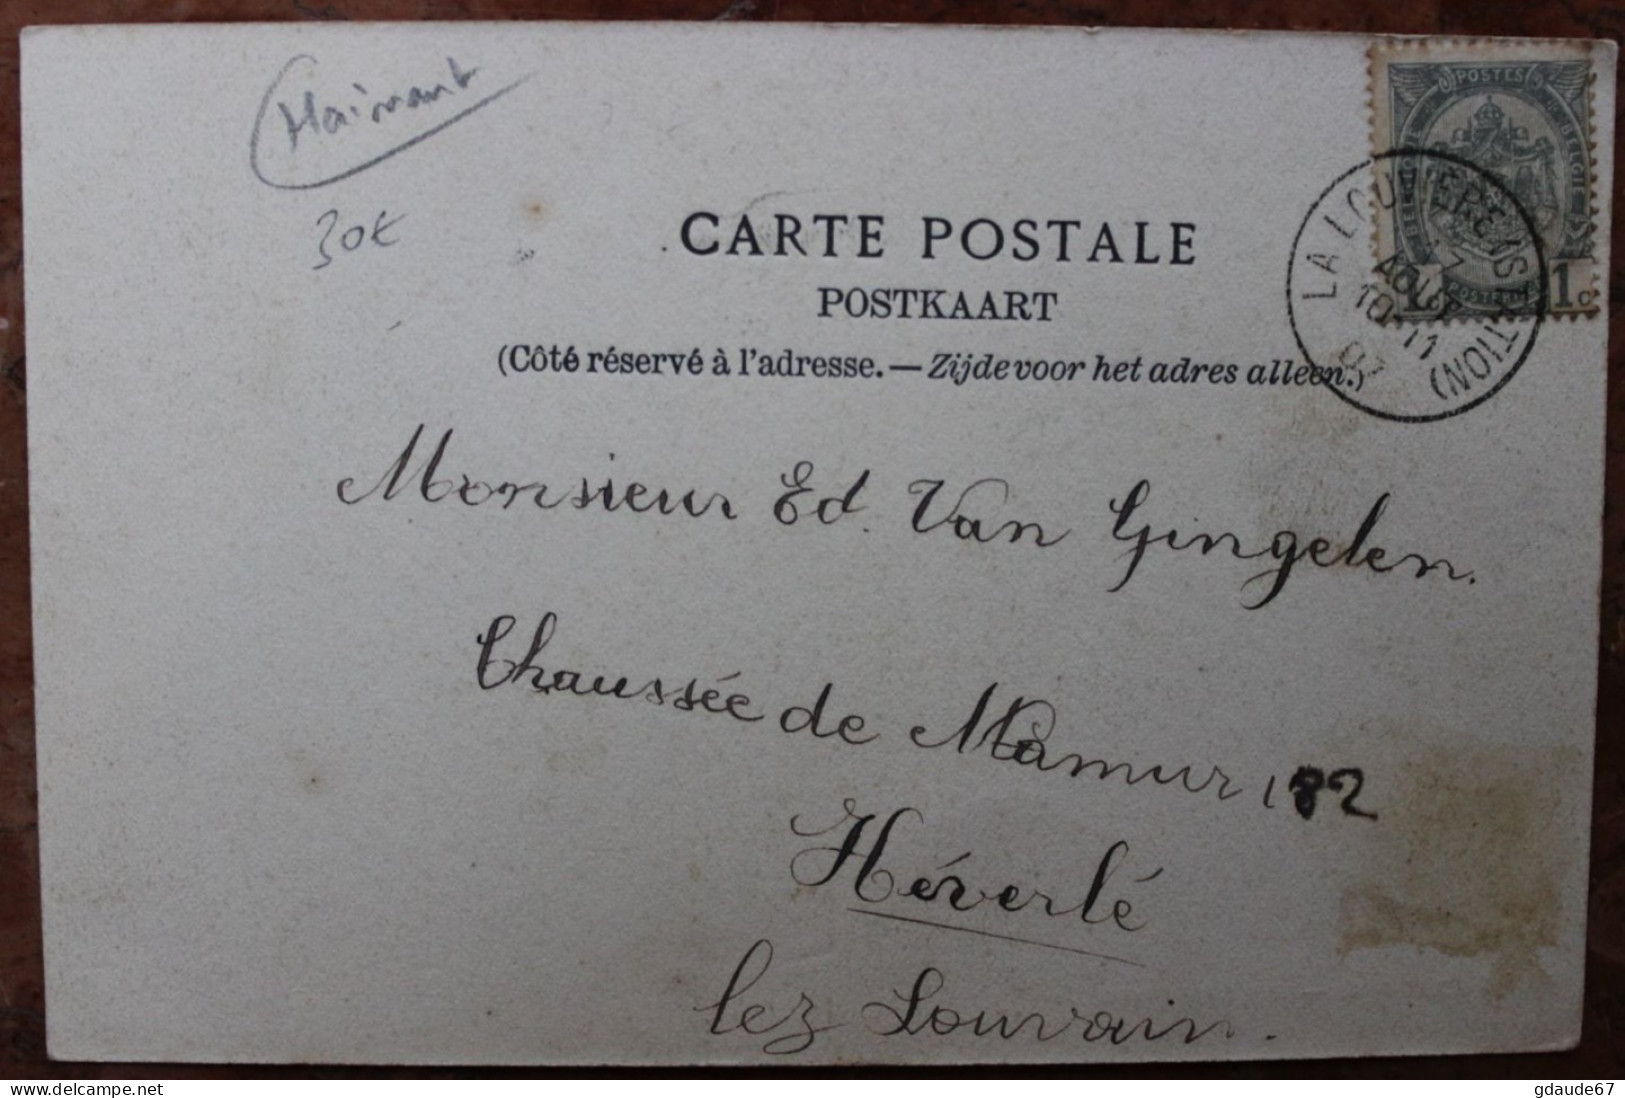 Hainaut
30€
CARTE POSTALE
POSTKAART
(Côté réservé à l'adresse. — Zijde voor het adres alleen.)
POSTES
BELGIQUE
BELGIË
POSTERIJEN
1c
LA LOUVIERE (STATION)
AOUT
10-11
Monsieur Ed. Van Gingelen.
Chaussée de Namur 182
Héverlé
lez Louvain.
www.delcampe.net
gdaude67